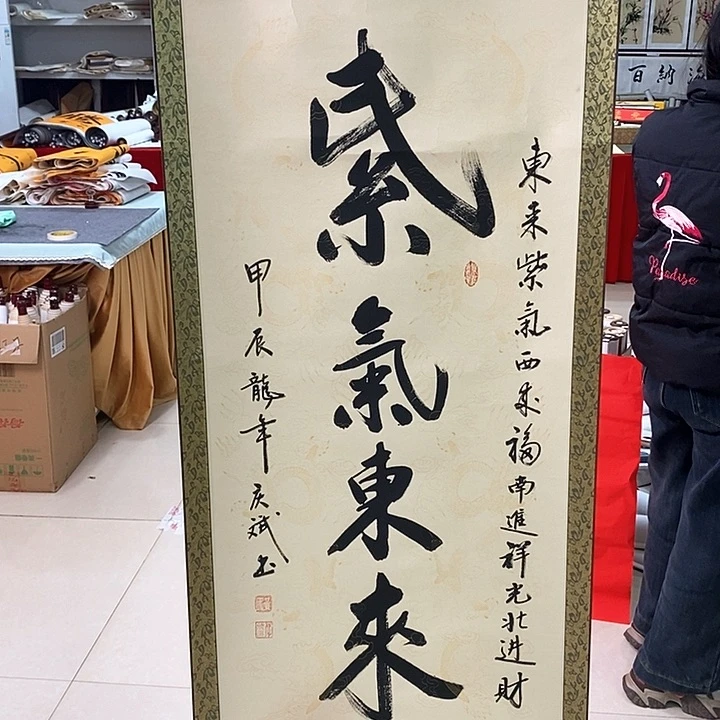 東来紫氣西来福南進祥光北进財
紫氣東來
甲辰龍年庆斌书
海納百
Paradise